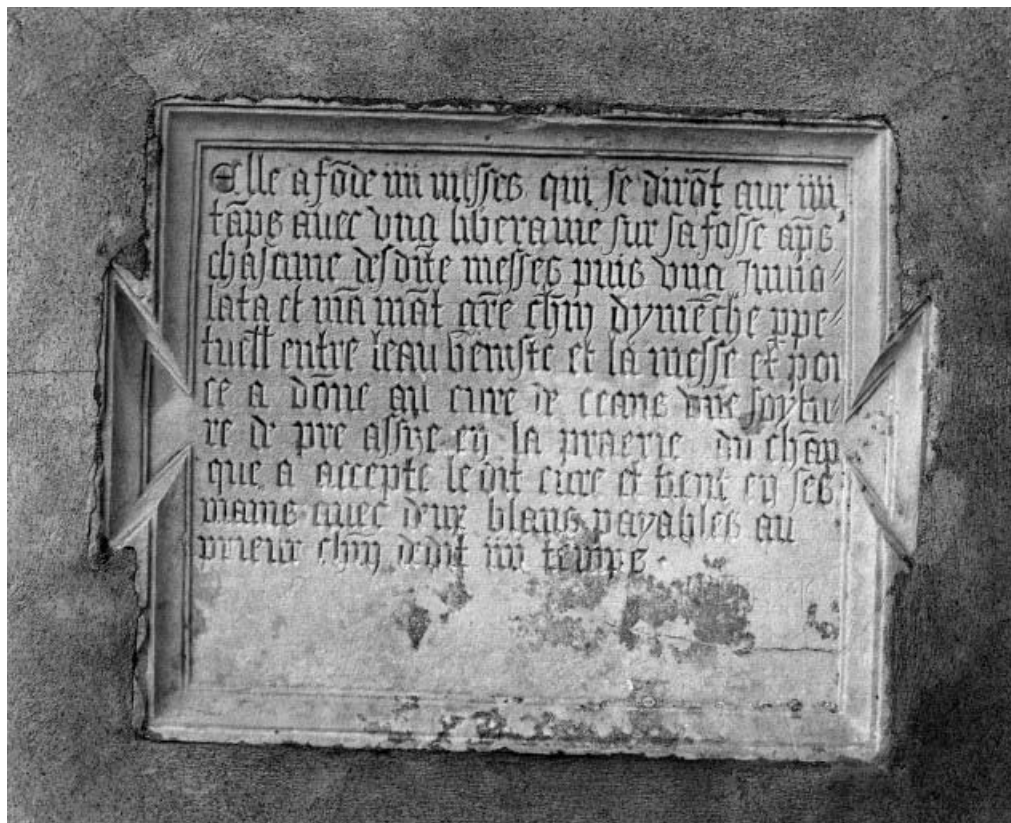 Elle a fōde iiii messes qui se dirāt aux iiii
tāps avec vng libera me sur sa fosse aps̄
chascune desdite messes puis vng Invio=
lata et mā māt grē chn̄ dymēche ppe=
tuell entre leau beniste et la messe et poi
ce a dōne au cure de ceans vne soytu=
re de pre assize en la praerie du chāp
que a accepte le dit cure et tient en ses
mains avec deux blans payables au
prieur chn̄ dedit iiii temps.